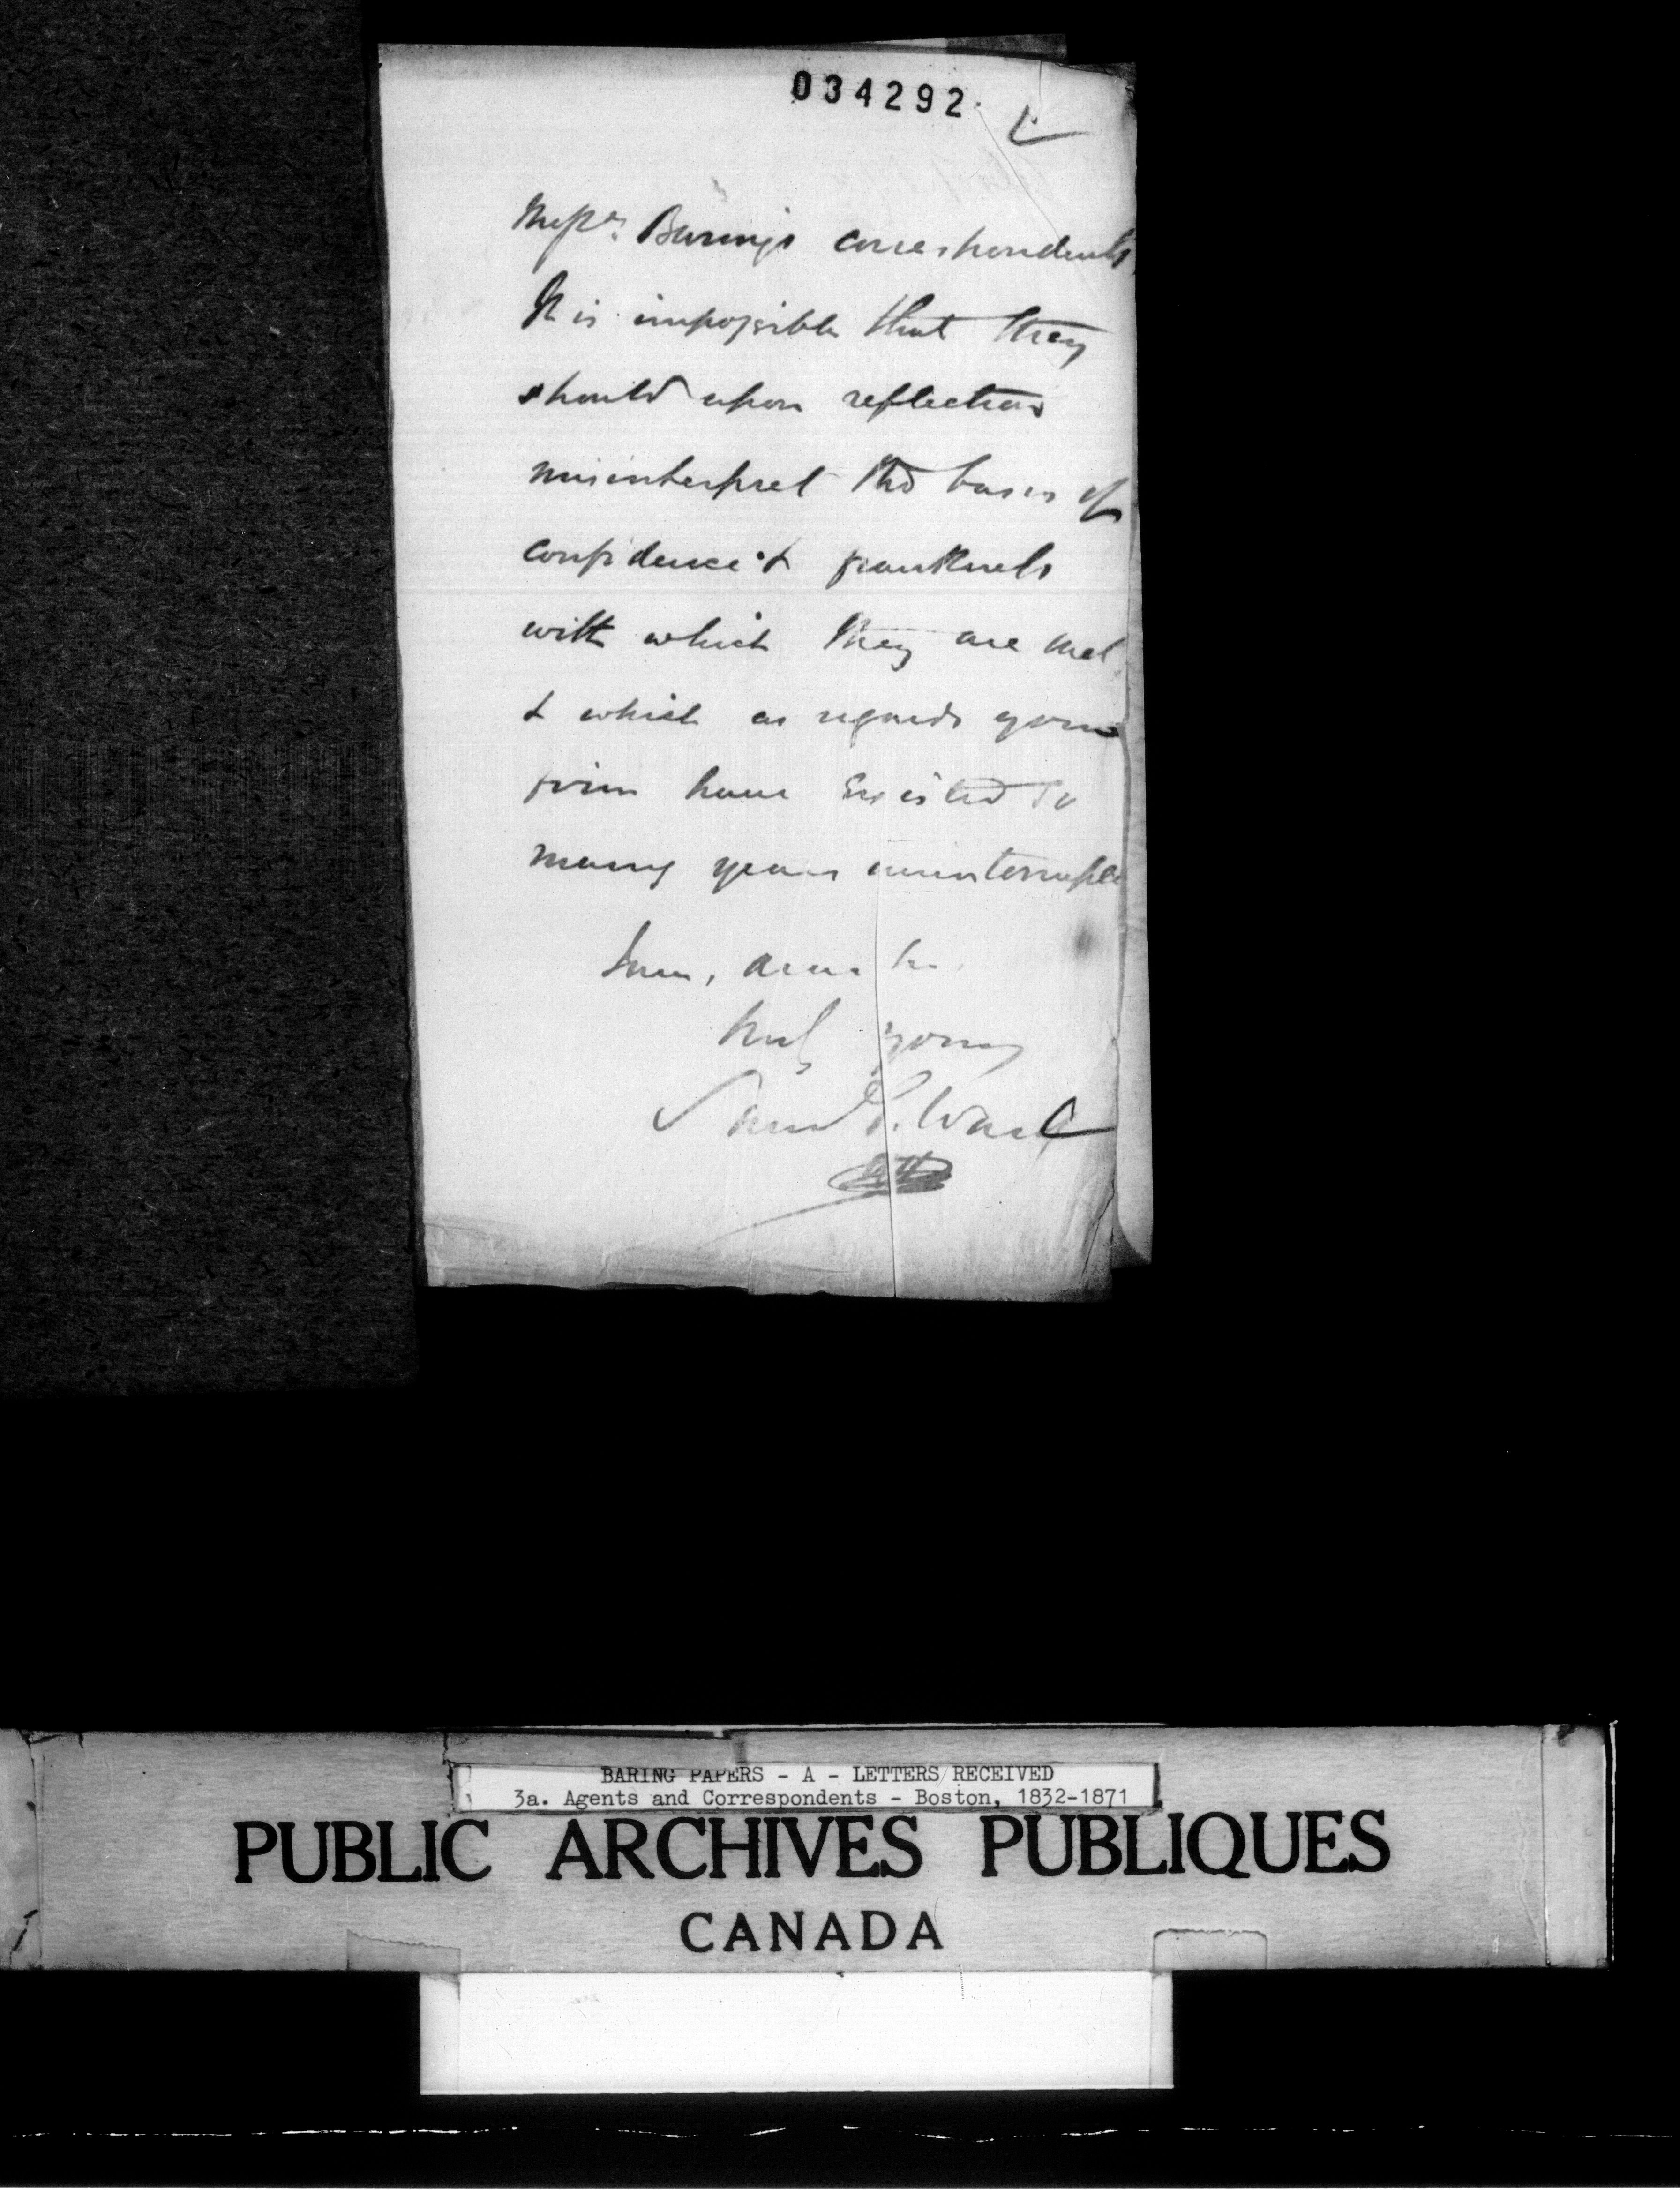 034292
Messrs Barings correspondents.
It is impossible that they
should upon reflection
misinterpret the basis of
confidence & frankness
with which they are met
& which as regards your
firm have existed so
many years uninterrupte
I am, dear Sir,
truly yours
Saml G. Ward
BARING PAPERS - A - LETTERS RECEIVED
3a. Agents and Correspondents - Boston, 1832-1871
PUBLIC ARCHIVES PUBLIQUES
CANADA